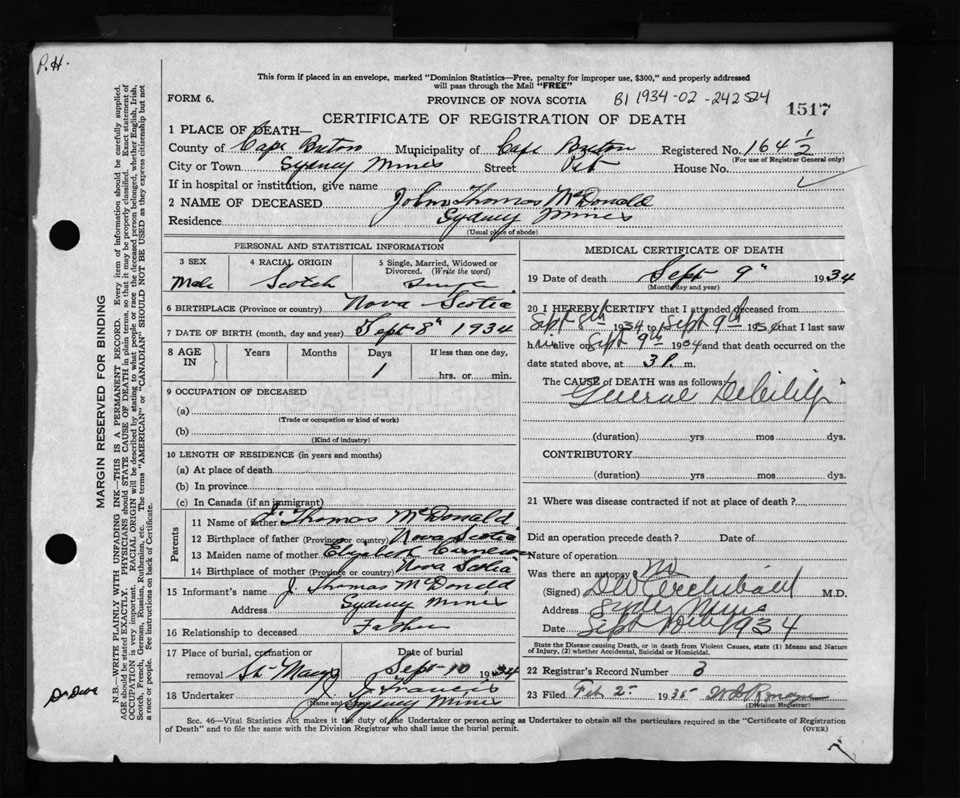 P.H.
This form if placed in an envelope, marked "Dominion Statistics—Free, penalty for improper use, $300," and properly addressed
will pass through the Mail "FREE"
FORM 6.
PROVINCE OF NOVA SCOTIA
B1 1934-02-242524
1517
CERTIFICATE OF REGISTRATION OF DEATH
1 PLACE OF DEATH—
County of Cape Breton Municipality of Cape Breton Registered No. 164 1/2
(For use of Registrar General only)
City or Town Sydney Mines Street House No.
If in hospital or institution, give name
2 NAME OF DECEASED John Thomas McDonald
Residence Sydney Mines
(Usual place of abode)
PERSONAL AND STATISTICAL INFORMATION
3 SEX
Male
4 RACIAL ORIGIN
Scotch
5 Single, Married, Widowed or
Divorced. (Write the word)
Single
6 BIRTHPLACE (Province or country) Nova Scotia
7 DATE OF BIRTH (month, day and year) Sept 8" 1934
8 AGE IN
Years Months Days If less than one day,
1 hrs. or min.
9 OCCUPATION OF DECEASED
(a)
(Trade or occupation or kind of work)
(b)
(Kind of industry)
10 LENGTH OF RESIDENCE (in years and months)
(a) At place of death
(b) In province
(c) In Canada (if an immigrant)
Parents
11 Name of father J. Thomas McDonald
12 Birthplace of father (Province or country) Nova Scotia
13 Maiden name of mother Elizabeth
14 Birthplace of mother (Province or country) Nova Scotia
15 Informant's name J. Thomas McDonald
Address Sydney Mines
16 Relationship to deceased Father
17 Place of burial, cremation or removal St. Mary's
Date of burial
Sept 10 1934
18 Undertaker J. J. Francis
Name and address
Sydney Mines
MEDICAL CERTIFICATE OF DEATH
19 Date of death Sept 9" 1934
(Month, day and year)
20 I HEREBY CERTIFY that I attended deceased from
Sept 8th 1934 to Sept 9th 1934 that I last saw
him alive on Sept 9th 1934 and that death occurred on the
date stated above, at 3 P. m.
The CAUSE of DEATH was as follows:
General Debility
(duration) yrs mos dys.
CONTRIBUTORY
(duration) yrs mos dys.
21 Where was disease contracted if not at place of death?
Did an operation precede death? Date of
Nature of operation
Was there an autopsy No
(Signed) Archibald M.D.
Address Sydney Mines
Date Sept 10th 1934
State the Disease causing Death, or in death from Violent Causes, state (1) Means and Nature
of Injury, (2) whether Accidental, Suicidal or Homicidal.
22 Registrar's Record Number 3
23 Filed Feb 2" 1935
(Division Registrar)
Sec. 46—Vital Statistics Act makes it the duty of the Undertaker or person acting as Undertaker to obtain all the particulars required in the "Certificate of Registration
of Death" and to file the same with the Division Registrar who shall issue the burial permit.
(OVER)
MARGIN RESERVED FOR BINDING
N.B.—WRITE PLAINLY WITH UNFADING INK—THIS IS A PERMANENT RECORD. Every item of information should be carefully supplied.
AGE should be stated EXACTLY. PHYSICIANS should STATE CAUSE OF DEATH in plain terms, so that it may be properly classified. Exact statement of
OCCUPATION is very important. RACIAL ORIGIN will be described by stating to what people or race the deceased person belonged, whether English, Irish,
Scotch, French, German, Russian, Ruthenian, etc. The terms "AMERICAN" or "CANADIAN" SHOULD NOT BE USED as they express citizenship but not
a race or people. See instructions on back of Certificate.